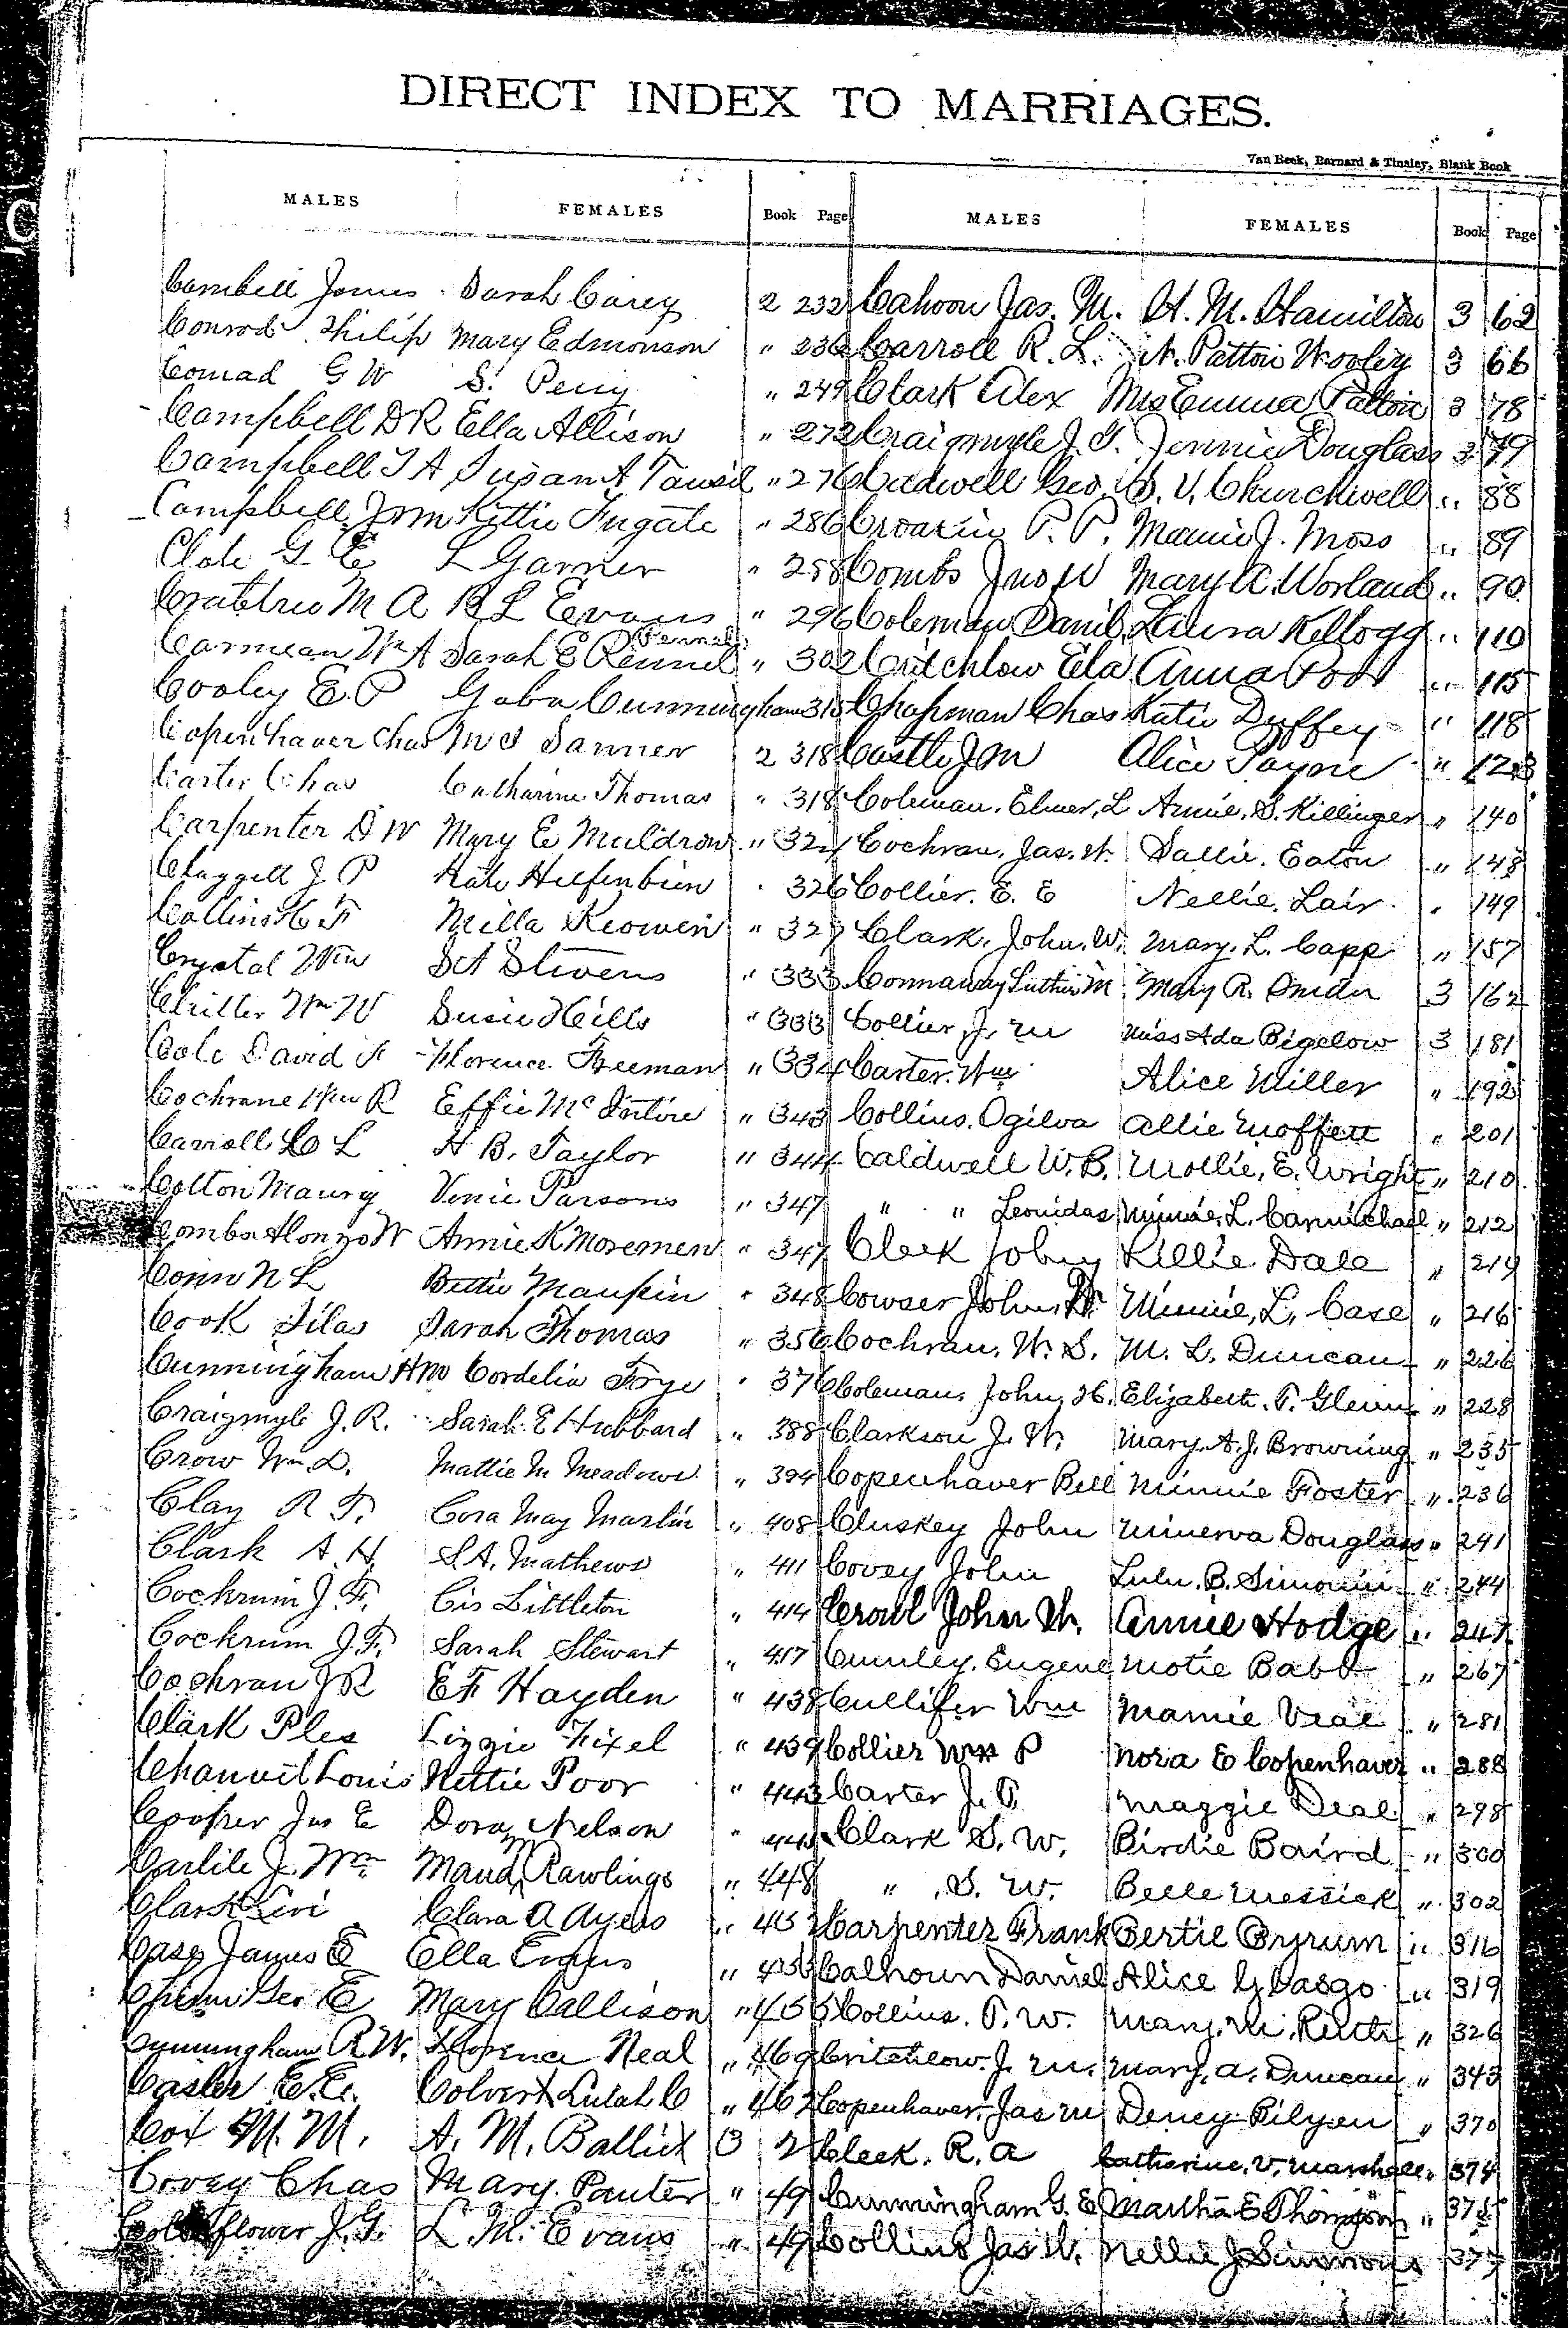 DIRECT INDEX TO MARRIAGES.
Van Beek, Barnard & Tinsley, Blank Book
MALES FEMALES Book Page
Cambell James Sarah Carey 2 232
Conrod Philip Mary Edmonson " 236
Conrad G W S. Perry " 249
Campbell D R Ella Allison " 272
Campbell T A Susan A Tansil " 276
Campbell Jno m Kittie Fugate " 286
Clote G E L Garner " 288
Crabtree M A B L Evans " 296
Carmean Wm A Sarah E Rennel " 302
Cooley E. P Gabu Cunningham 315
Copenhaver Chas M S Sanner 2 318
Carter Chas Catharine Thomas " 318
Carpenter D W Mary E Muldrow " 324
Claggett J P Kate Helfenbein " 326
Collins H F Milla Keowen " 327
Crystal Wm S A Stivens " 333
Critter Wm W Susie Hills " 333
Cole David F Florence Freeman " 334
Cochrane Wm R Effie McIntire " 343
Carroll C L H B. Taylor " 344
Cotton Maury Venie Parsons " 347
Combs Alonzo W Annie K Moremen " 347
Conn N L Bettie Maupin " 348
Cook Silas Sarah Thomas " 356
Cunningham H M Cordelia Frye " 376
Craigmyle J. R. Sarah E Hubbard " 388
Crow Wm D. Mattie M Meadows " 394
Clay R T. Cora May Marlin " 408
Clark A H. S A. Mathews " 411
Cockrum J. F. Cis Littleton " 414
Cockrum J. F. Sarah Stewart " 417
Cochran J R E F Hayden " 438
Clark Ples Lizzie Fixel " 439
Chauvit Louis Nettie Poor " 443
Cooper Jas E Dora Nelson "
Carlile J. Wm Maud M Rawlings " 448
Clark Levi Clara A Ayers "
Casey James E Ella "
Geo E Mary Callison " 455
Cunningham R. W. Florence Neal " 469
Casler E. E. Colvert Lulah C " 462
Cox M. M. A. M. Ballick 3 2
Covey Chas Mary Panter " 49
J. G. L. M. Evans " 49
MALES FEMALES Book Page
Cahoon Jas. M. H. M. Hamilton 3 62
Carroll R. L. N. Patton Wooley 3 66
Clark Alex Mrs Emma Patton 3 78
Craigmyle J. T. Jennie Douglass 3 79
Cadwell Geo. S. V. Churchwell " 88
Croakin P. P. Mamie J. Moss " 89
Combs Jno W Mary A. Worland " 90
Coleman Danil Laura Kellogg " 110
Critchlow Ela Anna Poor " 115
Chapman Chas Katie Duffey " 118
Castle J M Alice Payne " 123
Coleman. Elmer, L Annie. S. Killinger " 140
Cochran, Jas. W. Sallie. Eaton " 148
Collier. E. E Nellie. Lair " 149
Clark. John. W. Mary. L. Capp " 157
Connaway Luther M Mary R. Snider 3 162
Collier, J. M Miss Ada Bigelow 3 181
Carter. Wm Alice Miller " 192
Collins. Ogilva Allie Moffett " 201
Caldwell W. B. Mollie, E. Wright " 210
" " Leonidas Minnie, L. Carmichael " 212
Cleek John Lillie Dale " 214
Cowser John, W. Minnie, L, Case " 216
Cochran, W. S. M. L. Duncan " 226
Coleman. John, H. Elizabeth. T. Glenn " 228
Clarkson J. W. Mary A. J. Browning " 235
Copenhaver Bell Minnie Foster " 236
Cluskey John Minerva Douglass " 241
Covey John Lulu. B. Simonin " 244
Croul John W. Annie Hodge " 247
Cumley. Eugene Motie Babb " 267
Cullifer Wm Mamie Veal " 281
Collier Wm P Nora E Copenhaver " 288
Carter J. T. Maggie Deal " 298
Clark S. W. Birdie Baird " 300
" S. W. Belle Messick " 302
Carpenter Frank Bertie Byrum " 316
Calhoun Daniel Alice G Vasgo " 319
Collins. T. W. Mary. M. Ruth " 326
Critchlow. J. M. Mary. A. Duncan " 343
Copenhaver. Jas M Dency Bilyen " 370
Cleek. R. A Catherine. V. Marshall " 374
Cunningham G. E Martha E Thompson " 375
Collins Jas W. Nellie J Simmons 377